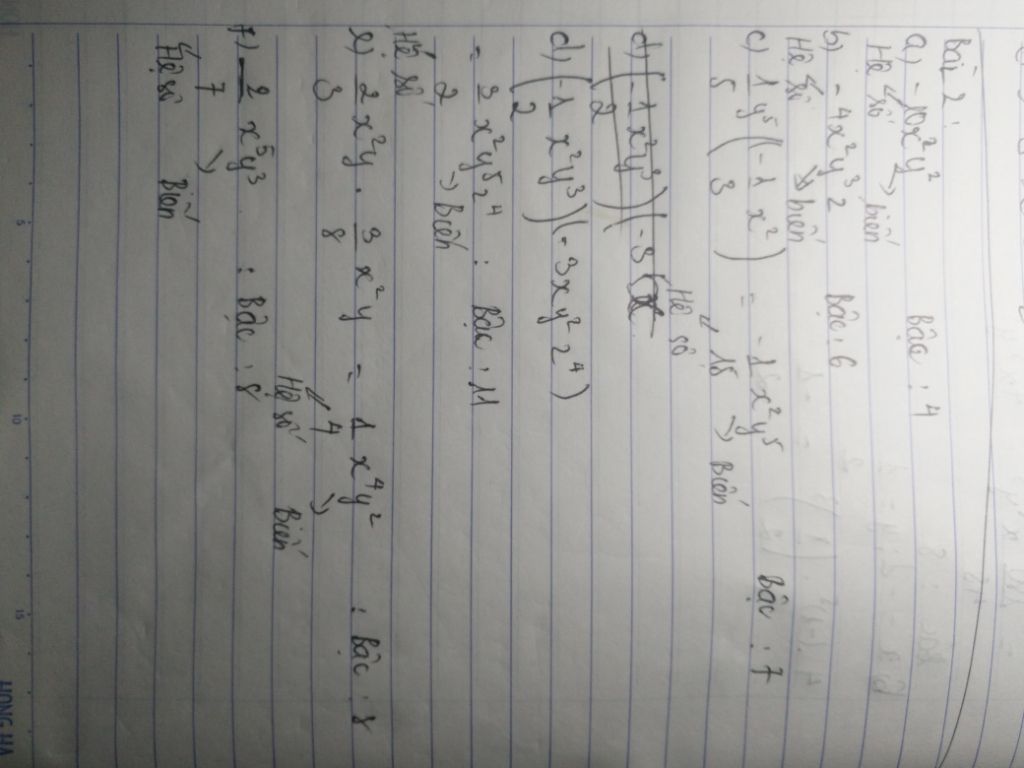 Bài 2:
a) - 10x²y² Bậc : 4
Hệ số biến
b) - 4x²y³z Bậc : 6
Hệ số biến
c) 1/5 y⁵ (-1/3 x²) = -1/15 x²y⁵ Bậc : 7
Hệ số Biến
d) (-1/2 x²y³)(-3(x
d) (-1/2 x²y³)(-3xy²z⁴)
= 3/2 x²y⁵z⁴ : Bậc : 11
Hệ số Biến
e) 2/3 x²y . 3/8 x²y = 1/4 x⁴y² : Bậc : 8
Hệ số Biến
f) -2/7 x⁵y³ : Bậc : 8
Hệ số Biến
HỒNG HÀ
5 10 15